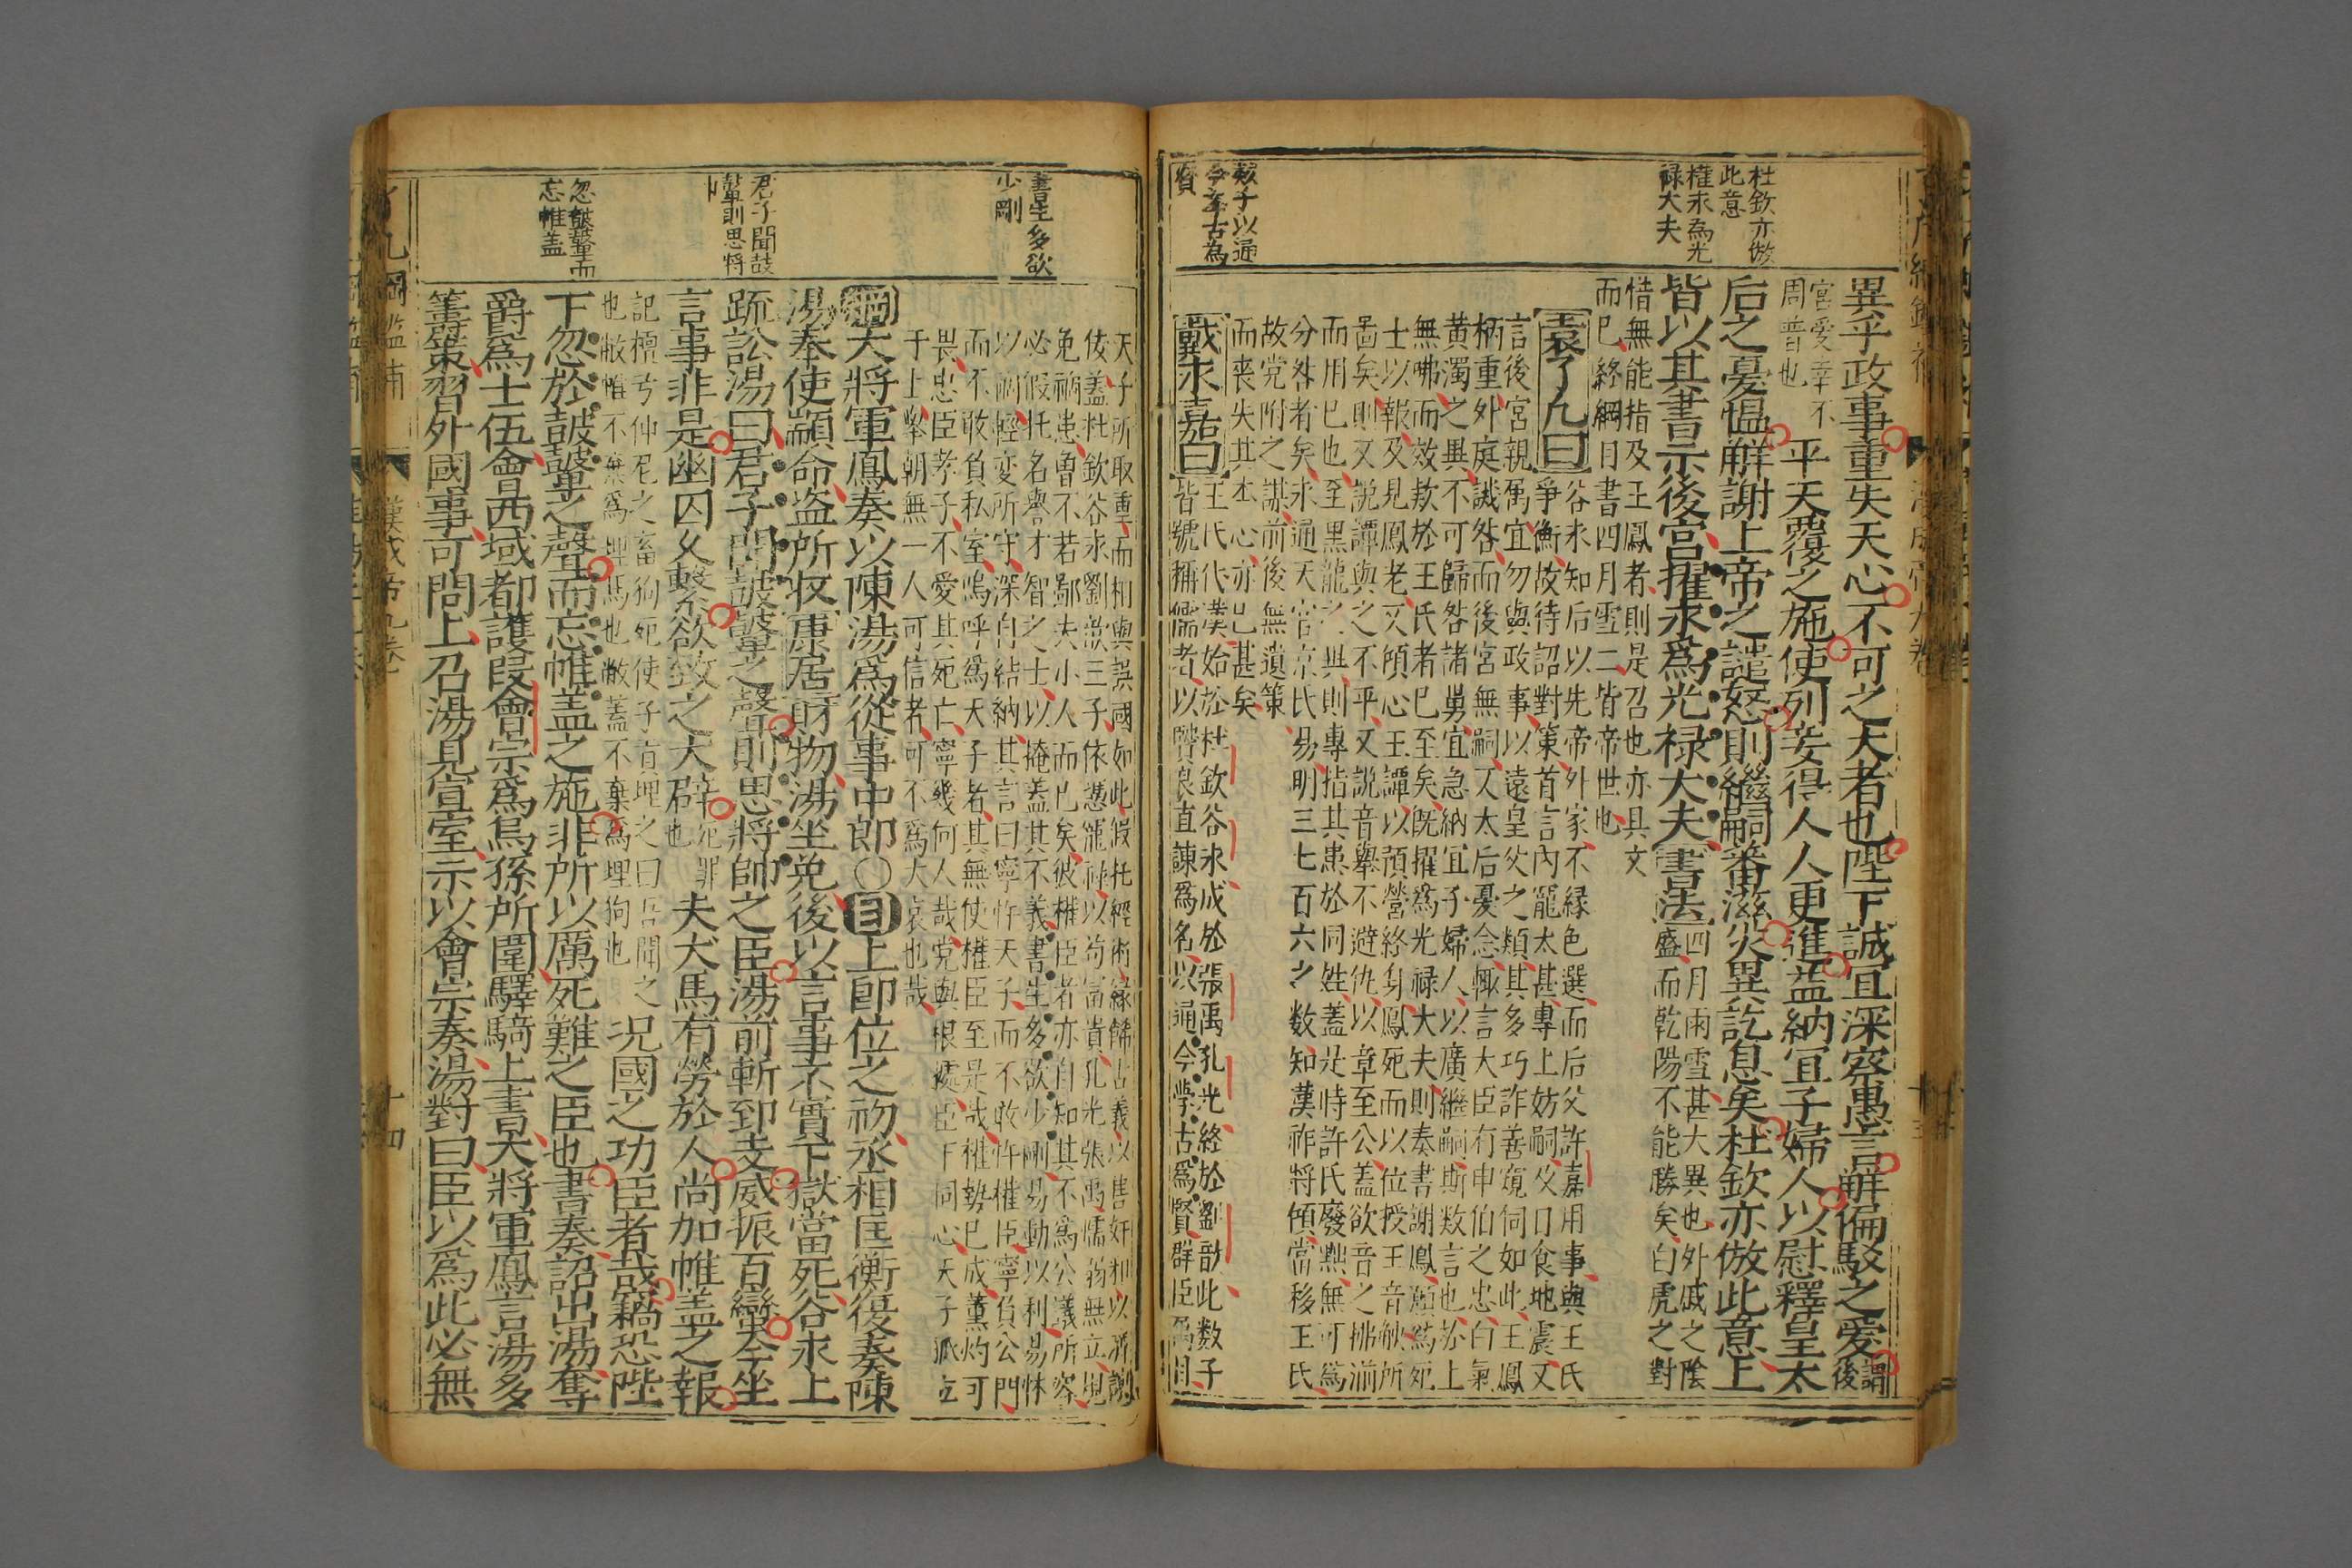 杜欽亦倣
此意
權永為光
禄大夫
数子以通
今學古為
賢
異乎政事重失天心不可之大者也陛下誠宜深察愚言解偏駁之愛謂後
宮愛幸不
周普也
平天覆之施使列妾得人人更進益納宜子婦人以慰釋皇太
后之憂慍解謝上帝之譴怒則繼嗣蕃滋災異訖息矣杜欽亦倣此意上
皆以其書示後宮擢永為光禄大夫書法四月雨雪甚大異也外戚之陰
盛而乾陽不能勝矣白虎之對
惜無能指及王鳳者則是召也亦具文
而已終綱目書四月雪二皆帝世也
袁了凡曰谷永知后以先帝外家不緣色選而后父許嘉用事與王氏
爭衡故待詔對策首言內寵太甚專上妨嗣及日食地震又
言後宮親属宜勿與政事以遠皇父之類其多巧詐善窺伺如此王鳳
柄重外庭譏咎而後宮無嗣又太后憂念輙言大臣有申伯之忠白氣
黃濁之異不可歸咎諸舅宜急納宜子婦人以廣繼嗣斯数言也於上
無咈而效款於王氏者已至矣既擢為光禄大夫則奏書謝鳳願為死
士以報及見鳳老又傾心王譚以預營終身鳳死而以位授王音觖所
啚矣則又說譚與之不平又說音舉不避仇以章至公蓋欲音之拂湔
而用已也至黑龍之異則專指其患於同姓蓋是時許氏廢黜無可為
分咎者矣永通天官京氏易明三七百六之数知漢祚將傾當移王氏
故党附之謀前後無遺策
而丧失其本心亦已甚矣
戴永嘉曰王氏代漢始於杜欽谷永成於張禹孔光終於劉歆此数子
皆號稱儒者以賢良直諫為名以通今學古為賢群臣為目
書生多欲
少剛
君子聞鼓
鼙則思將
帥
忽皷鼙而
忘帷盖
天子所取重而相與誤國如此假托經術緣餙古義以售奸和以濟謝
依盖杜欽谷永劉歆三子依憑寵祿以苟富貴孔光張禹懦弱無立規
免禍患曾不若鄙夫小人而已矣彼權臣者亦自知其不為公議所容
必假托名譽才智之士以掩蓋其不義書生多欲少剛易動以利易怵
以禍輕变所守深自結納其言曰寧忤天子而不敢忤權臣寧負公門
而不敢負私室嗚呼為天子者其無使權臣至是哉權勢已成薰灼可
畏忠臣孝子不愛其死亡寧幾何人哉党與根據臣下同心天子孤立
于上舉朝無一人可信者可不為大哀也哉
綱大將軍鳳奏以陳湯為從事中郎〇目上即位之初丞相匡衡復奏陳
湯奉使顓命盜所收康居財物湯坐免後以言事不實下獄當死谷永上
疏訟湯曰君子聞皷鼙之聲則思將帥之臣湯前斬郅支威振百蠻今坐
言事非是幽囚久繫欲致之大辟死罪也夫犬馬有勞於人尚加帷盖之報
記檀弓仲尼之畜狗死使子貢埋之曰吾聞之
也敝帷不棄為埋馬也敝蓋不棄為埋狗也
況國之功臣者哉竊恐陛
下忽於皷鼙之聲而忘帷盖之施非所以厲死難之臣也書奏詔出湯奪
爵為士伍會西域都護段會宗為烏孫所圍驛騎上書大將軍鳳言湯多
籌策習外國事可問上召湯見宣室示以會宗奏湯對曰臣以為此必無